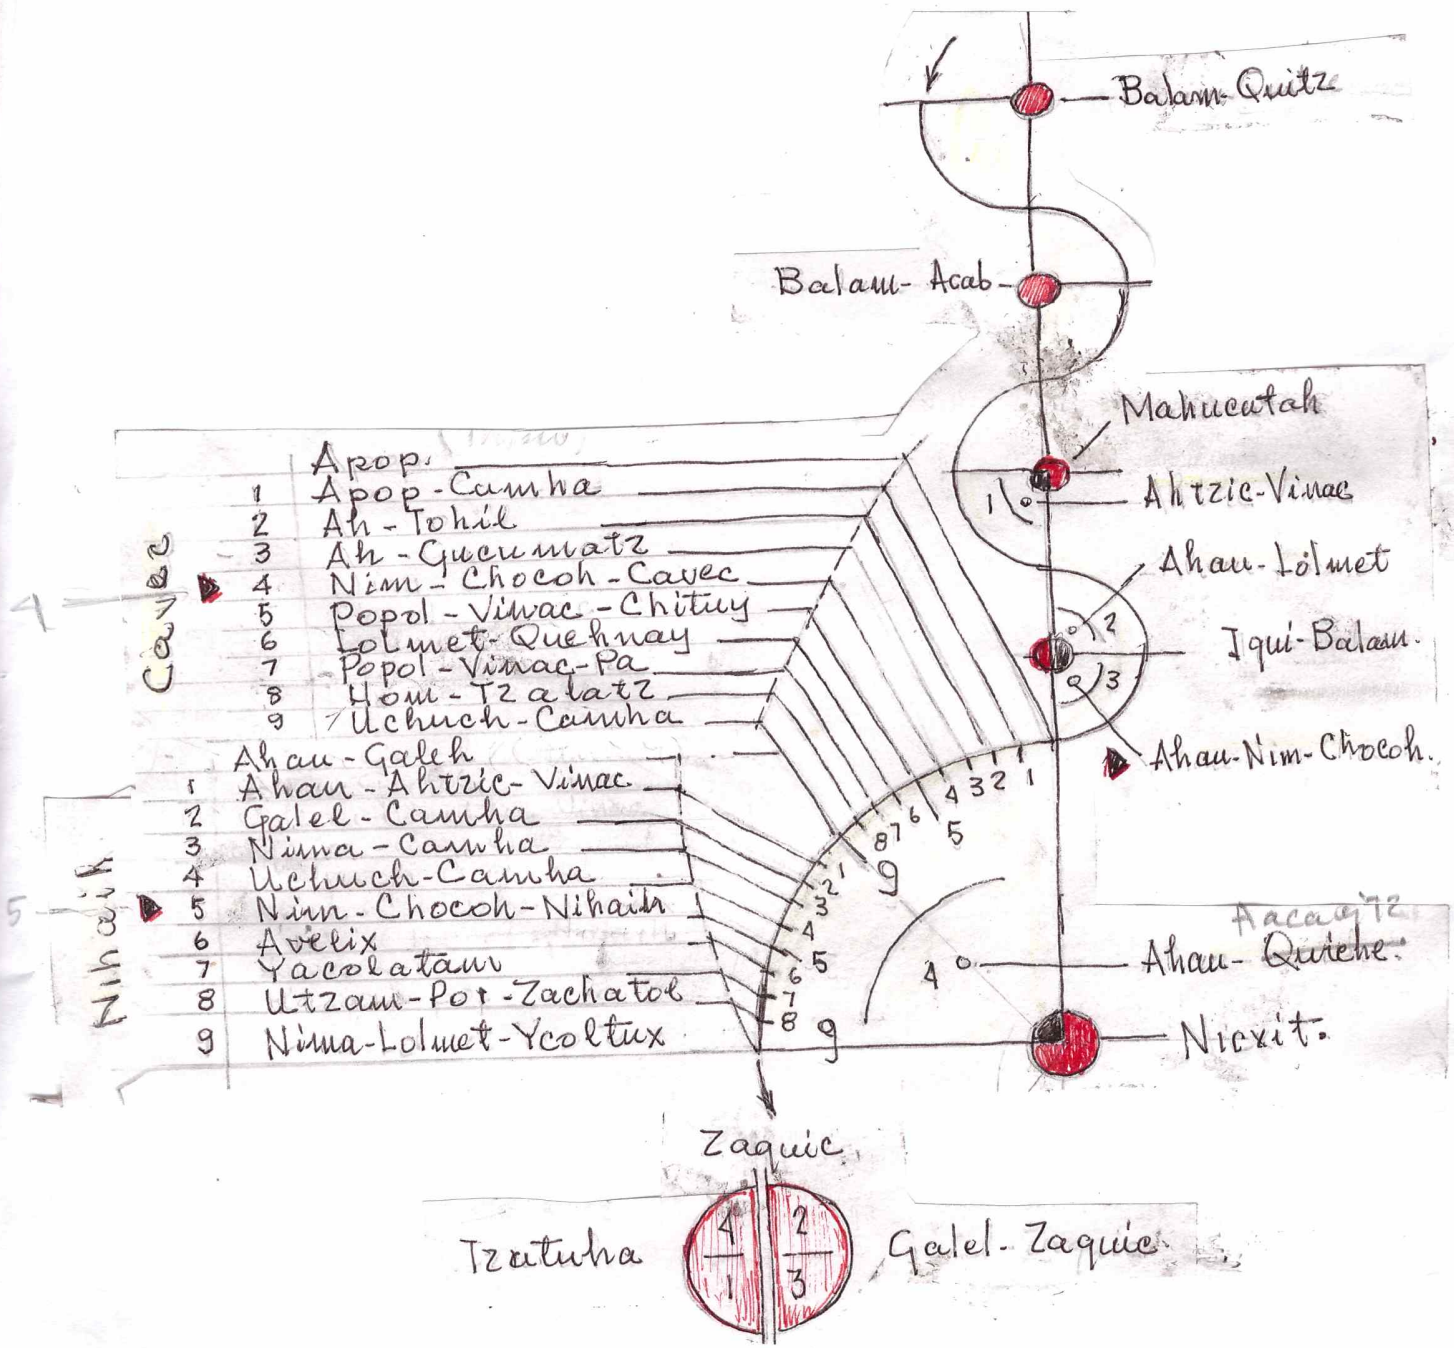 Balam-Quitz
Balam-Acab
Mahucutah
Ahtzic-Vinac
1
Ahau-Lolmet
2
Iqui-Balam.
3
Ahau-Nim-Chocoh.
Cavec
4
Apop.
1 Apop-Camha
2 Ah-Tohil
3 Ah-Gucumatz
4 Nim-Chocoh-Cavec
5 Popol-Vinac-Chituy
6 Lolmet-Quehnay
7 Popol-Vinac-Pa
8 Hom-Tzalatz
9 Uchuch-Camha
Nihaih
5
Ahau-Galeh
1 Ahau-Ahtzic-Vinac
2 Galel-Camha
3 Nima-Camha
4 Uchuch-Camha
5 Nim-Chocoh-Nihaih
6 Avelix
7 Yacolatam
8 Utzam-Pot-Zachatol
9 Nima-Lolmet-Ycoltux
9 8 7 6 5 4 3 2 1
1 2 3 4 5 6 7 8 9
4
Ahau-Quiche.
Nicxit.
Zaquic
Tzatuha
4 2
1 3
Galel-Zaquic.